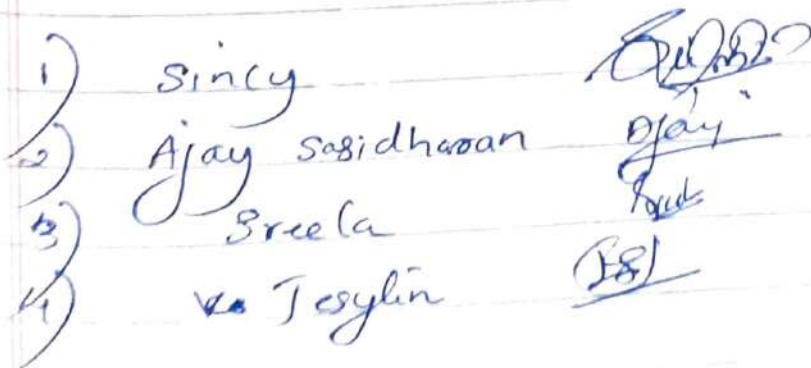 1) Sincy
2) Ajay Sasidharan Ajay
3) Sreela
4) Jesylin